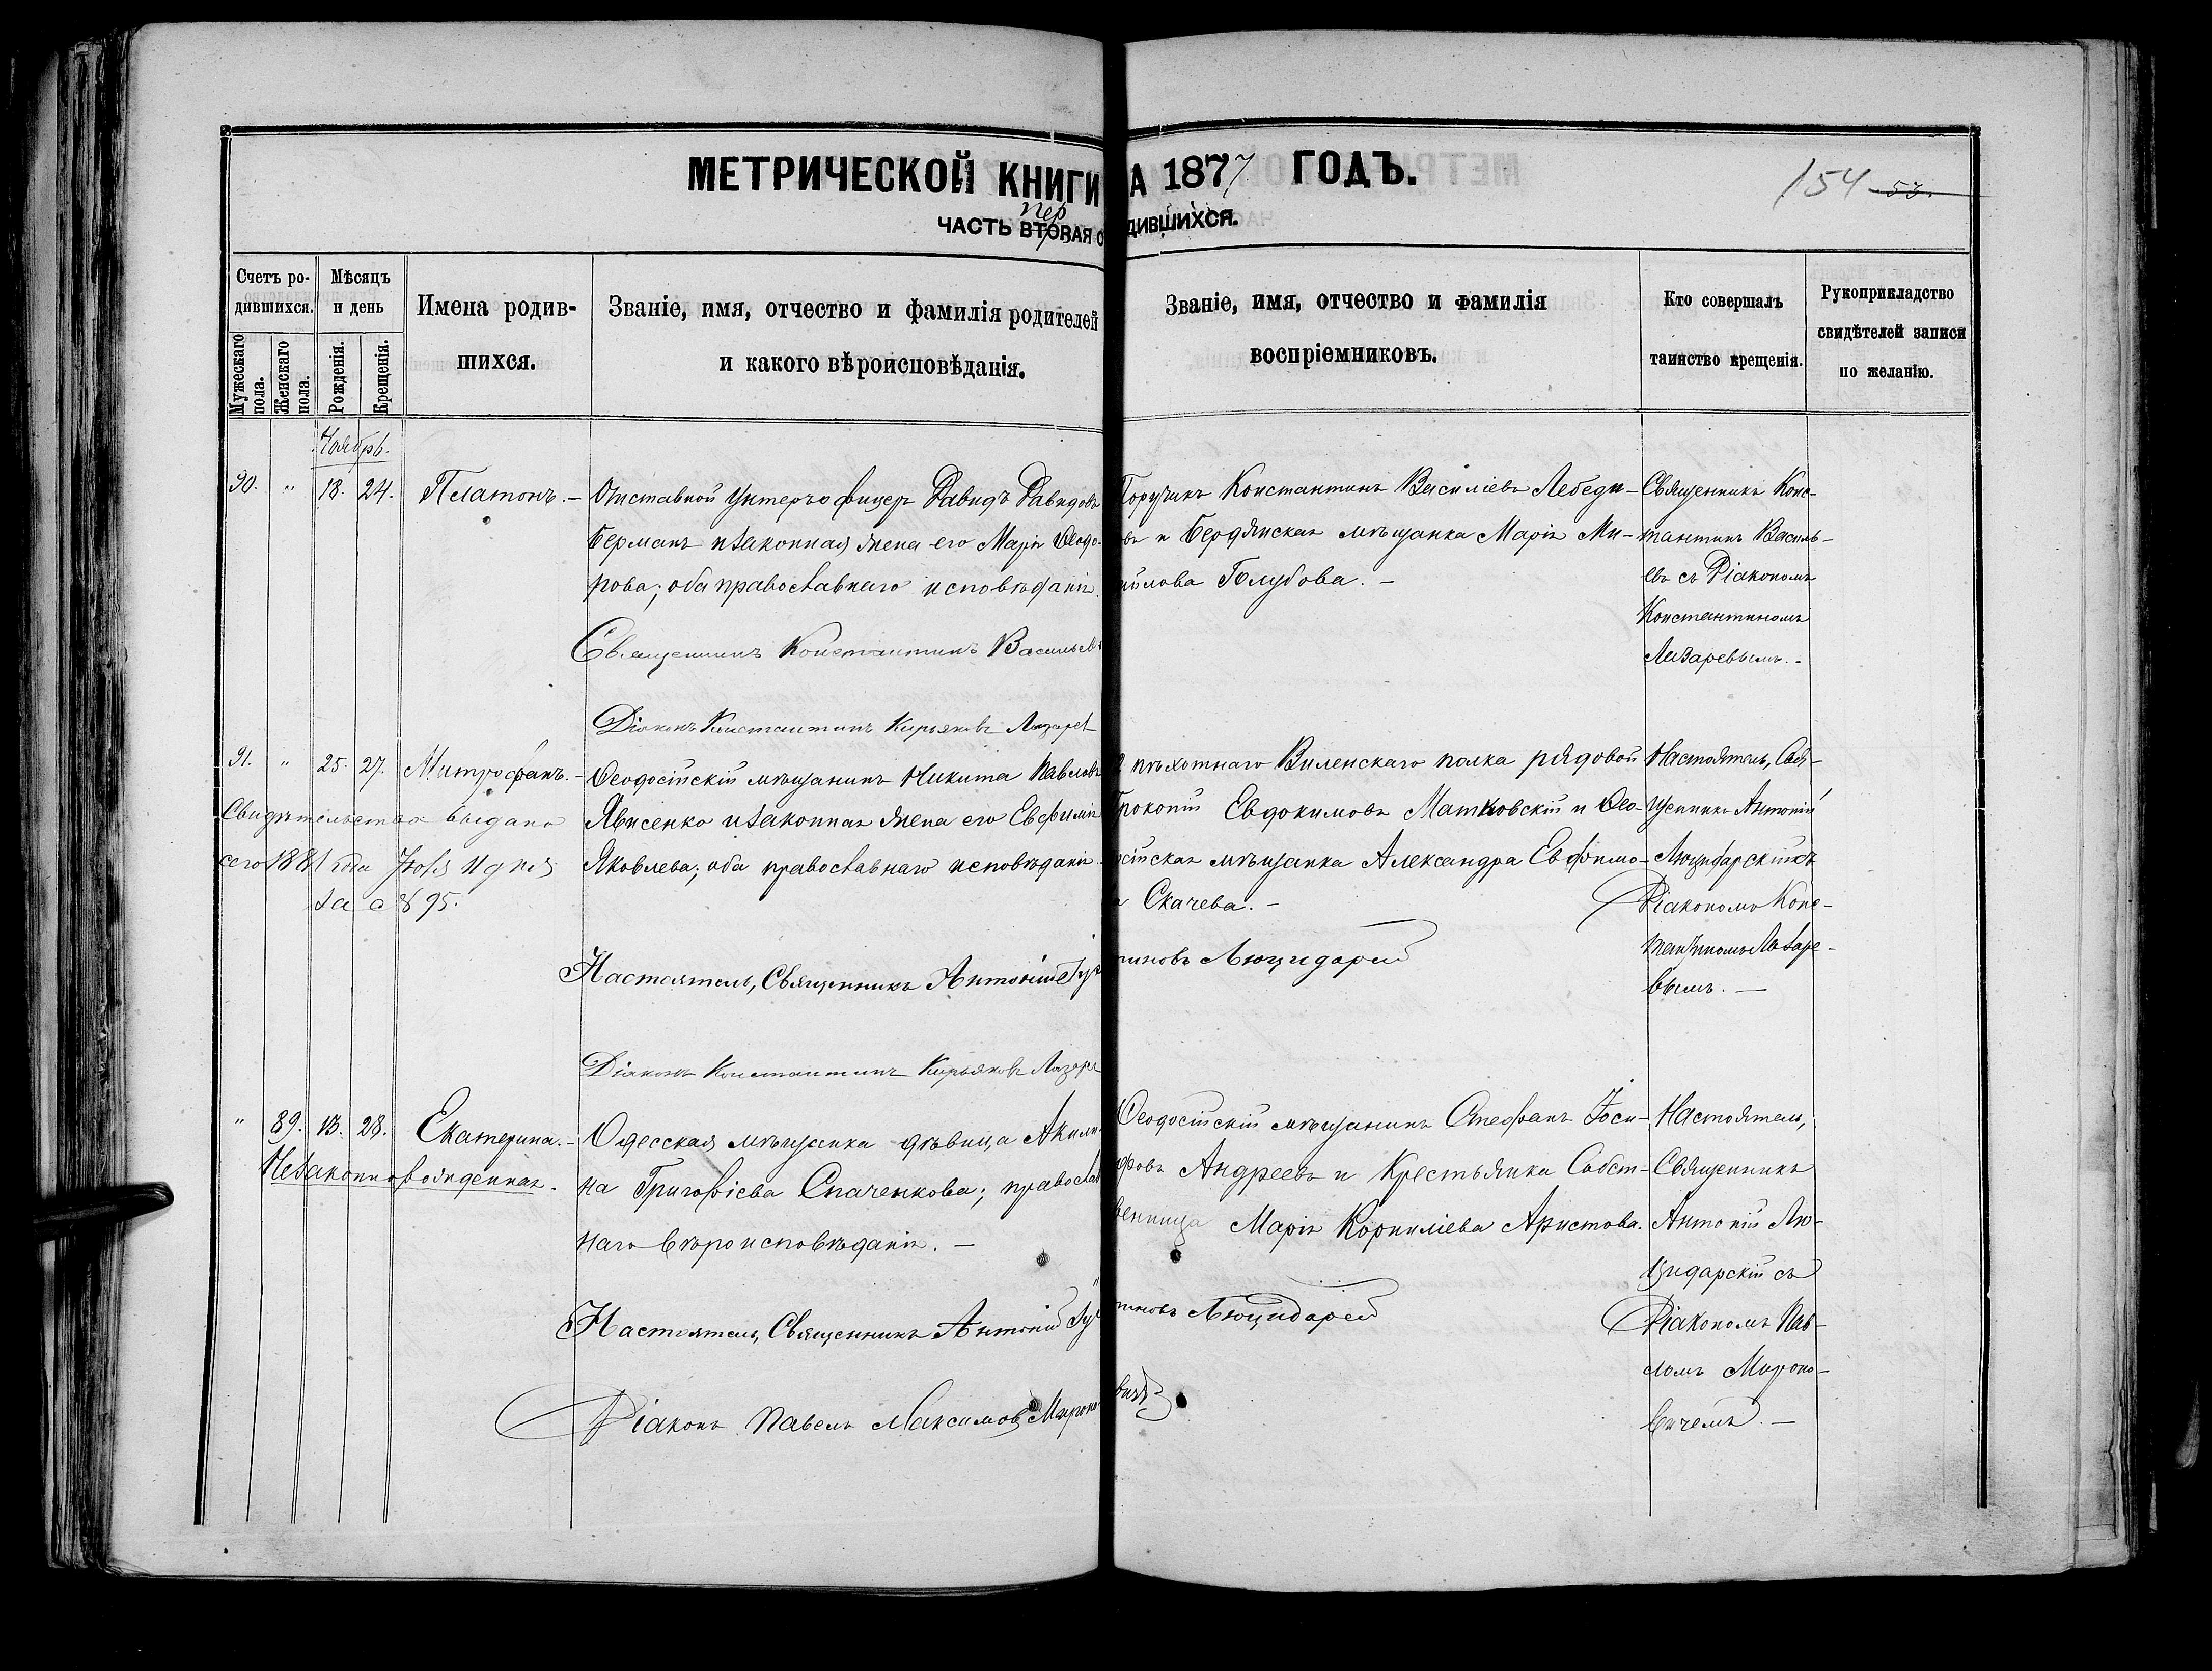 МЕТРИЧЕСКОЙ КНИГИ
А 1877 ГОДЪ.
154 53.
пер
ЧАСТЬ ВТОРАЯ О
ДИВШИХСЯ.
Счетъ ро-
дившихся.
Мужескаго пола.
Женскаго пола.
Мѣсяцъ
и день
Рожденія.
Крещенія.
Имена родив-
шихся.
Званіе, имя, отчество и фамилія родителей
и какого вѣроисповѣданія.
Званіе, имя, отчество и фамилія
воспріемниковъ.
Кто совершалъ
таинство крещенія.
Рукоприкладство
свидѣтелей записи
по желанію.
Ноябрь.
90. " 18. 24. Платонъ. –
Отставной Унтеръ офицеръ Давидъ Давидовъ
Берманъ и законная жена его Марія Ѳеодо-
рова; оба православнаго исповѣданія.
Священникъ Константинъ Васильевъ
Діаконъ Константинъ Кирьяковъ Лазарев
Поручикъ Константинъ Василіевъ Лебеди-
въ и Бердянская мѣщанка Марія Ми-
йлова Голубова. –
Священникъ Конс-
тантинъ Василь-
евъ съ Діакономъ
Константиномъ
Лазаревымъ. –
91. " 25. 27. Митрофанъ. –
Свидѣтельство выдано
сего 1881 года Іюля дня
за № 95.
Ѳеодосійскій мѣщанинъ Никита Павловъ
Явисенко и законная жена его Евфимія
Яковлева; оба православнаго исповѣданія.
Настоятель, Священникъ Антоній
Діаконъ Константинъ Кирьяковъ Лазаре
пѣхотнаго Виленскаго полка рядовой
Прокопій Евдокимовъ Матковскій и Ѳео-
сійская мѣщанка Александра Евфимо-
а Скачева. –
иновъ Люцидарскій
Настоятель, Свя-
щенникъ Антоній
Люцидарскій съ
Діакономъ Конс-
тантиномъ Лазаре-
вымъ. –
" 89. 13. 28. Екатерина. –
Незаконнорожденная.
Одесская мѣщанка дѣвица Акили-
на Григоріева Спаченкова; православ
наго вѣроисповѣданія. –
Настоятель, Священникъ Антоній
Діаконъ Павелъ Максимовъ Мироно
Ѳеодосійскій мѣщанинъ Стефанъ Іоси-
фовъ Андреевъ и Крестьянка Собст-
венница Марія Корниліева Аристова.
иновъ Люцидарскій
вичъ
Настоятель,
Священникъ
Антоній Лю-
цидарскій съ
Діакономъ Пав-
ломъ Мироно-
вичемъ. –